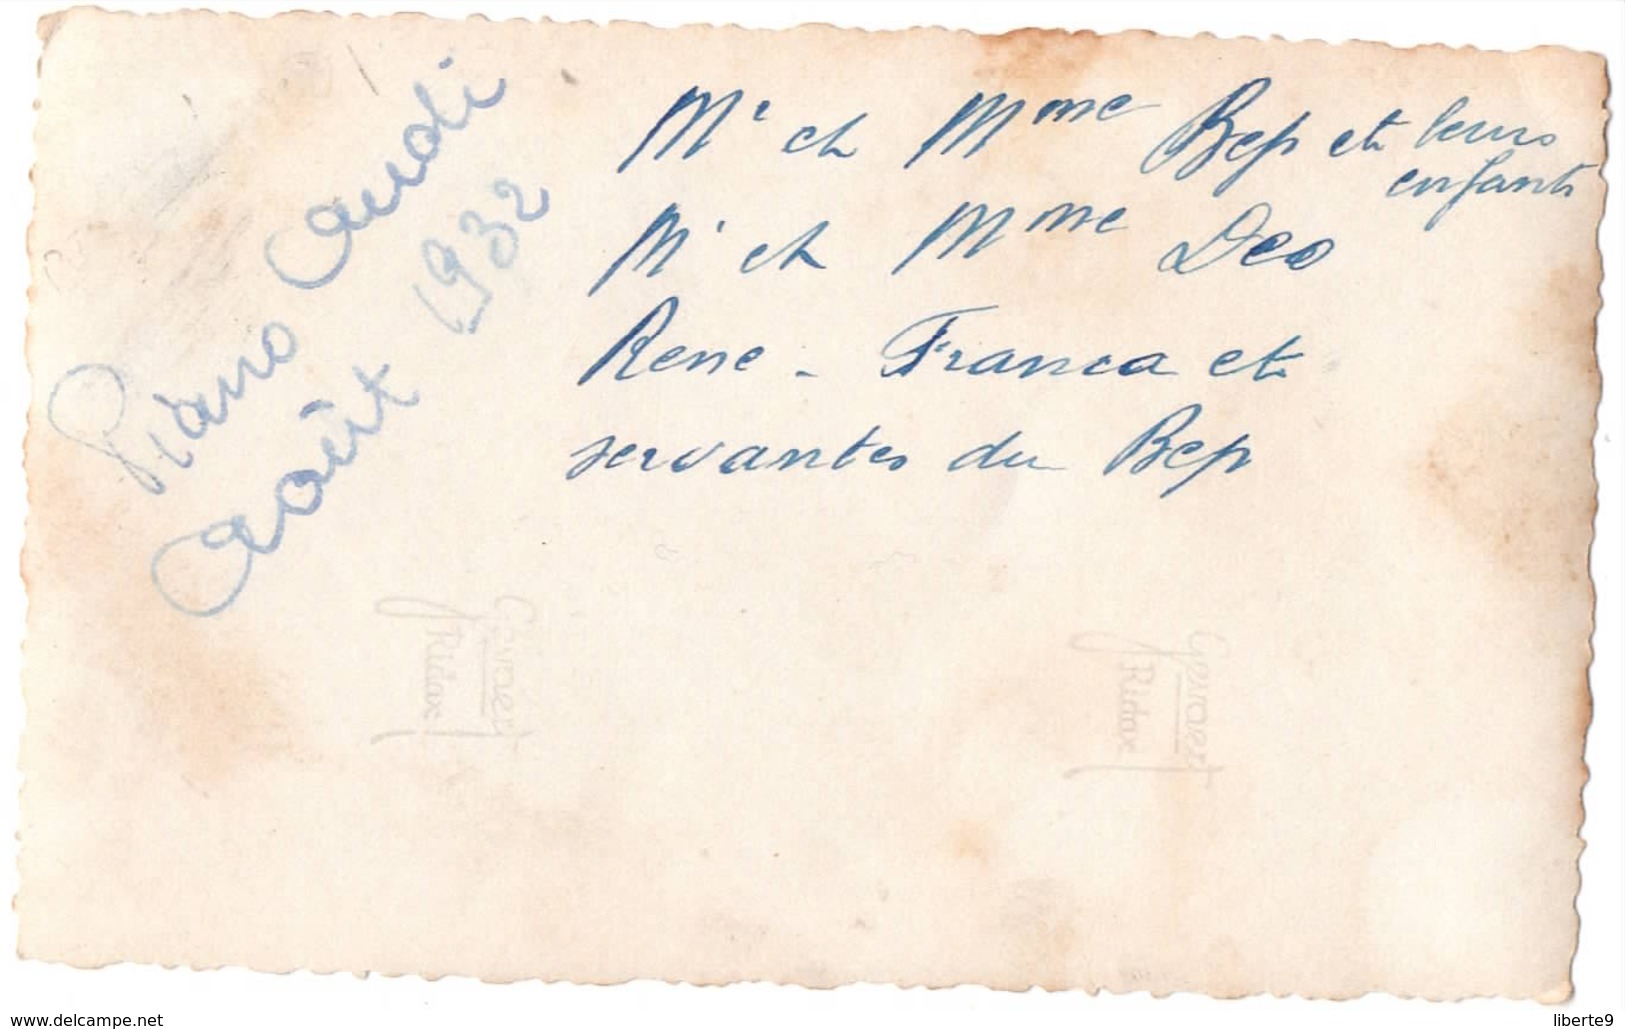 Piano Audi
Août 1932
Mr et Mme Bep et leurs
enfants
Mr et Mme Deo
Rene - Franca et
servantes du Bep
Gevaert
Ridax
Gevaert
Ridax
www.delcampe.net
liberte9